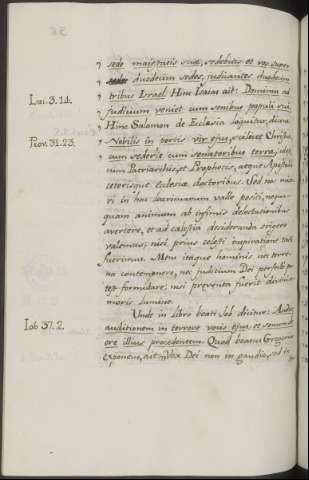 sede maiestatis suæ, sedebitis et vos super
duodecim sedes, judicantes duodecim
Isai. 3. 14. tribus Israel. Hinc Isaias ait: Dominus ad
judicium veniet cum senibus populi sui.
Hinc Salomon de Ecclesia loquitur, dicens
Prov. 31. 23. Nobilis in portis vir ejus, scilicet Christus,
cum sederit cum senatoribus terræ, idest
cum Patriarchis, et Prophetis, atque Apostolis
ceterisque ecclesiæ doctoribus. Sed nos mise-
ri in hac lacrimarum valle positi, nequa-
quam animum ab infimis delectationibus
avertere, et ad cælestia desideranda erigere
valemus, nisi prius cælesti inspiratione tacti
fuerimus. Metu itaque hominis nec terre-
na contemnere, nec judicium Dei potest
formidare, nisi preventa fuerit divini
timoris lumine.
Unde in libro beati Job dicitur: Audiet
Iob 37. 2. auditionem in terrore vocis ejus, et sonum de
ore illius procedentem. Quod beatus Gregorius
exponens, ait: Vox Dei non in gaudio, sed in